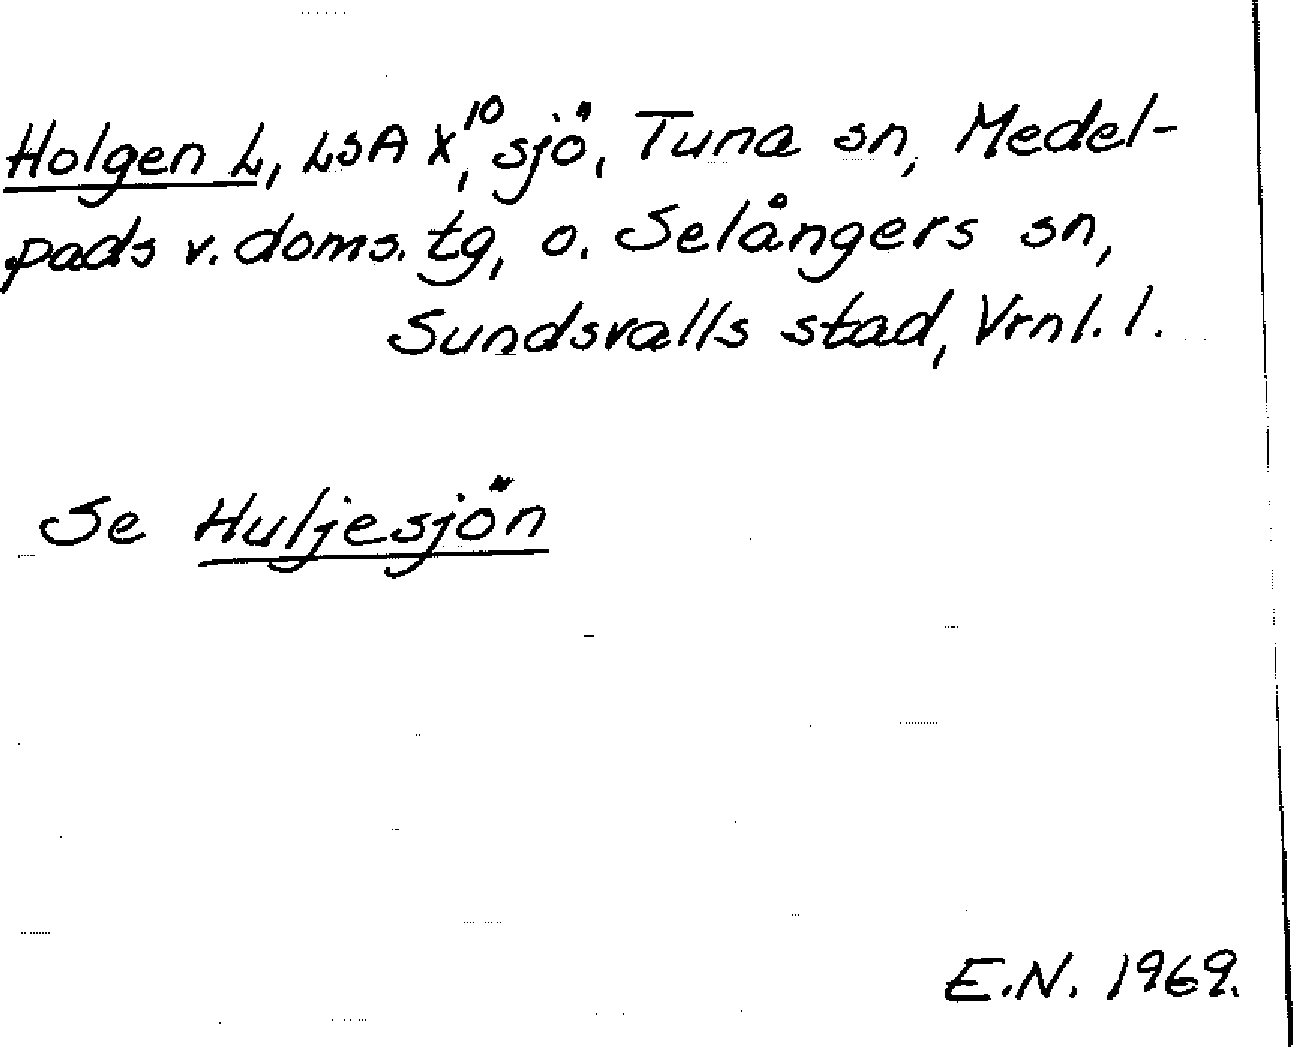 Holgen L, LSA X,¹⁰ sjö, Tuna sn, Medel-
pads v. doms. tg, o. Selångers sn,
Sundsvalls stad, Vrnl. l.
Se Huljesjön
E.N. 1969.